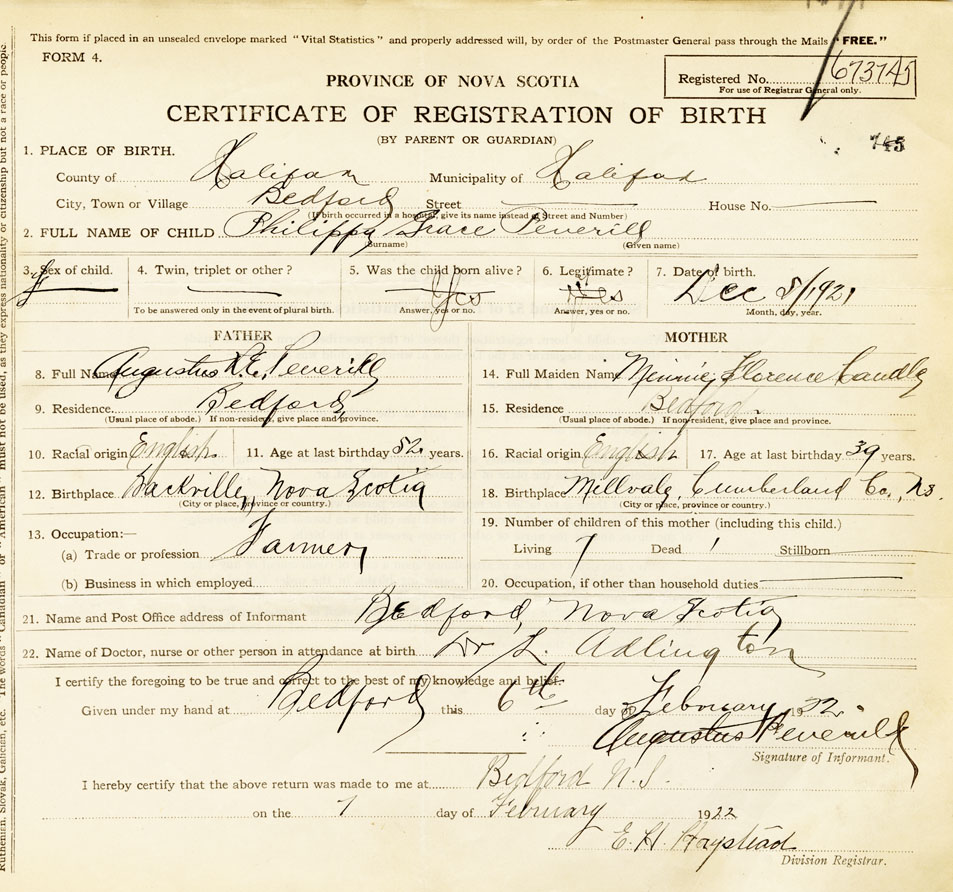 This form if placed in an unsealed envelope marked "Vital Statistics" and properly addressed will, by order of the Postmaster General pass through the Mails "FREE."
FORM 4.
PROVINCE OF NOVA SCOTIA
Registered No. 673745
For use of Registrar General only.
CERTIFICATE OF REGISTRATION OF BIRTH
(BY PARENT OR GUARDIAN)
745
1. PLACE OF BIRTH.
County of Halifax Municipality of Halifax
City, Town or Village Bedford Street House No.
(If birth occurred in a hospital, give its name instead of Street and Number)
2. FULL NAME OF CHILD Philippa Grace Peverill
(Surname) (Given name)
3. Sex of child. 4. Twin, triplet or other? 5. Was the child born alive? 6. Legitimate? 7. Date of birth.
f Yes Yes Dec 8/1921
To be answered only in the event of plural birth. Answer, yes or no. Answer, yes or no. Month, day, year.
FATHER MOTHER
8. Full Name Augustus R.E. Peverill 14. Full Maiden Name Minnie Florence
9. Residence Bedford 15. Residence Bedford
(Usual place of abode.) If non-resident, give place and province. (Usual place of abode.) If non-resident, give place and province.
10. Racial origin English 11. Age at last birthday 52 years. 16. Racial origin English 17. Age at last birthday 39 years.
12. Birthplace Sackville, Nova Scotia 18. Birthplace Millvale, Cumberland Co., N.S.
(City or place, province or country.) (City or place, province or country.)
13. Occupation:— 19. Number of children of this mother (including this child.)
(a) Trade or profession Farmer Living 7 Dead 1 Stillborn
(b) Business in which employed 20. Occupation, if other than household duties
21. Name and Post Office address of Informant Bedford, Nova Scotia
22. Name of Doctor, nurse or other person in attendance at birth Dr L. Adlington
I certify the foregoing to be true and correct to the best of my knowledge and belief.
Given under my hand at Bedford this 6th day of February 1922
Augustus Peverill
Signature of Informant.
I hereby certify that the above return was made to me at Bedford N.S.
on the 7 day of February 1922
E. H. Haystead
Division Registrar.
must not be used, as they express nationality or citizenship but not a race or people.
The words "Canadian" or "American"
Ruthenian, Slovak, Galician, etc.